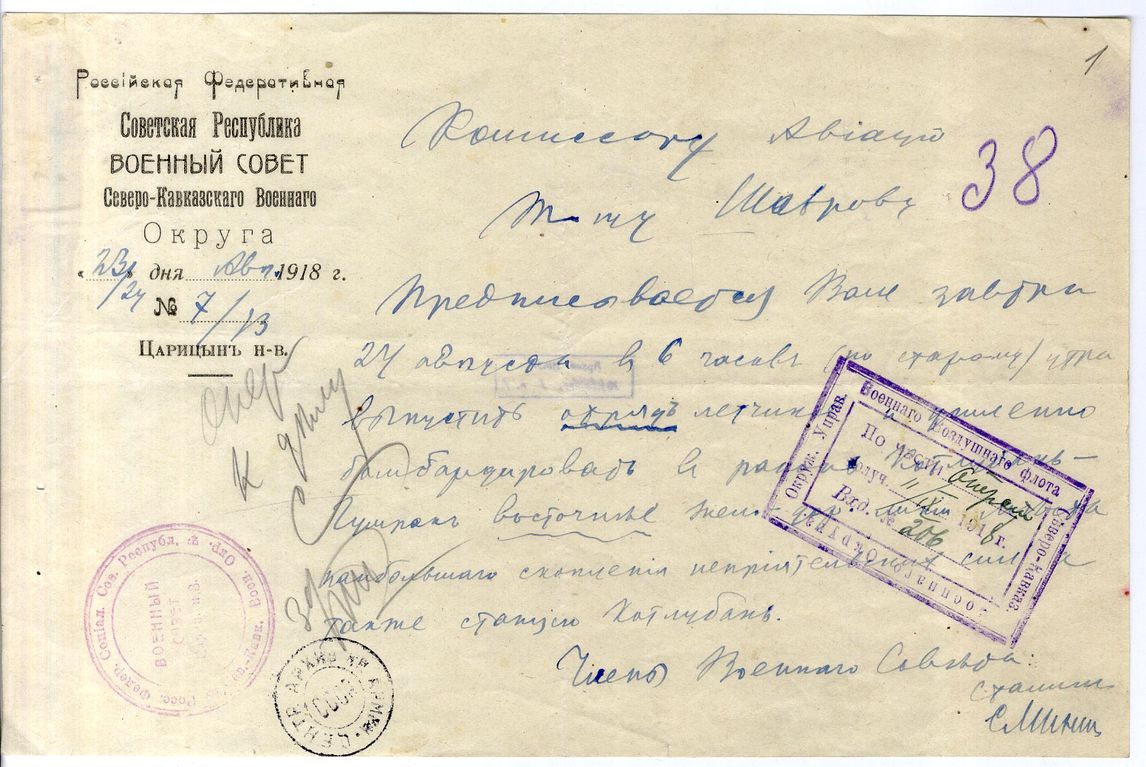 1
Россійская Федеративная
Советская Республика
ВОЕННЫЙ СОВЕТ
Северо-Кавказскаго Военнаго
Округа
"23/24" дня Авг. 1918 г.
№ 7/13
Царицынъ н-в.
Комиссару Авіаціи
Т-щу Шаврову
38
Предписывается Вам завтра
24 августа в 6 часовъ /по старому/ утра
выпустить отрядъ летчиков усиленно
бомбардировать в районе Котлубань-
восточнее
наибольшаго скопленія непріятельских сил а
также станцию Котлубань.
Члены Военнаго Совета:
Сталин
С Минин
к делу
Окруж. Управ. Военнаго Воздушнаго флота
Северо-Кавказ
Военнаго Округа
По части
Получ. 11/IX 1918 г.
Вхд. № 206
Росс. Федер. Соціал. Сов. Республ.
Сѣв. Кавк. Воен. Окр.
ВОЕННЫЙ
СОВЕТ
ЦЕНТР АРХИВ КР АРМИИ
СССР